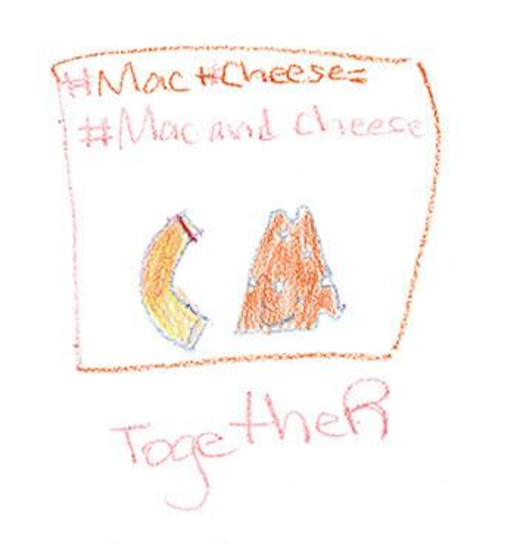 #Mac+#Cheese=
#Mac and cheese
TogetheR